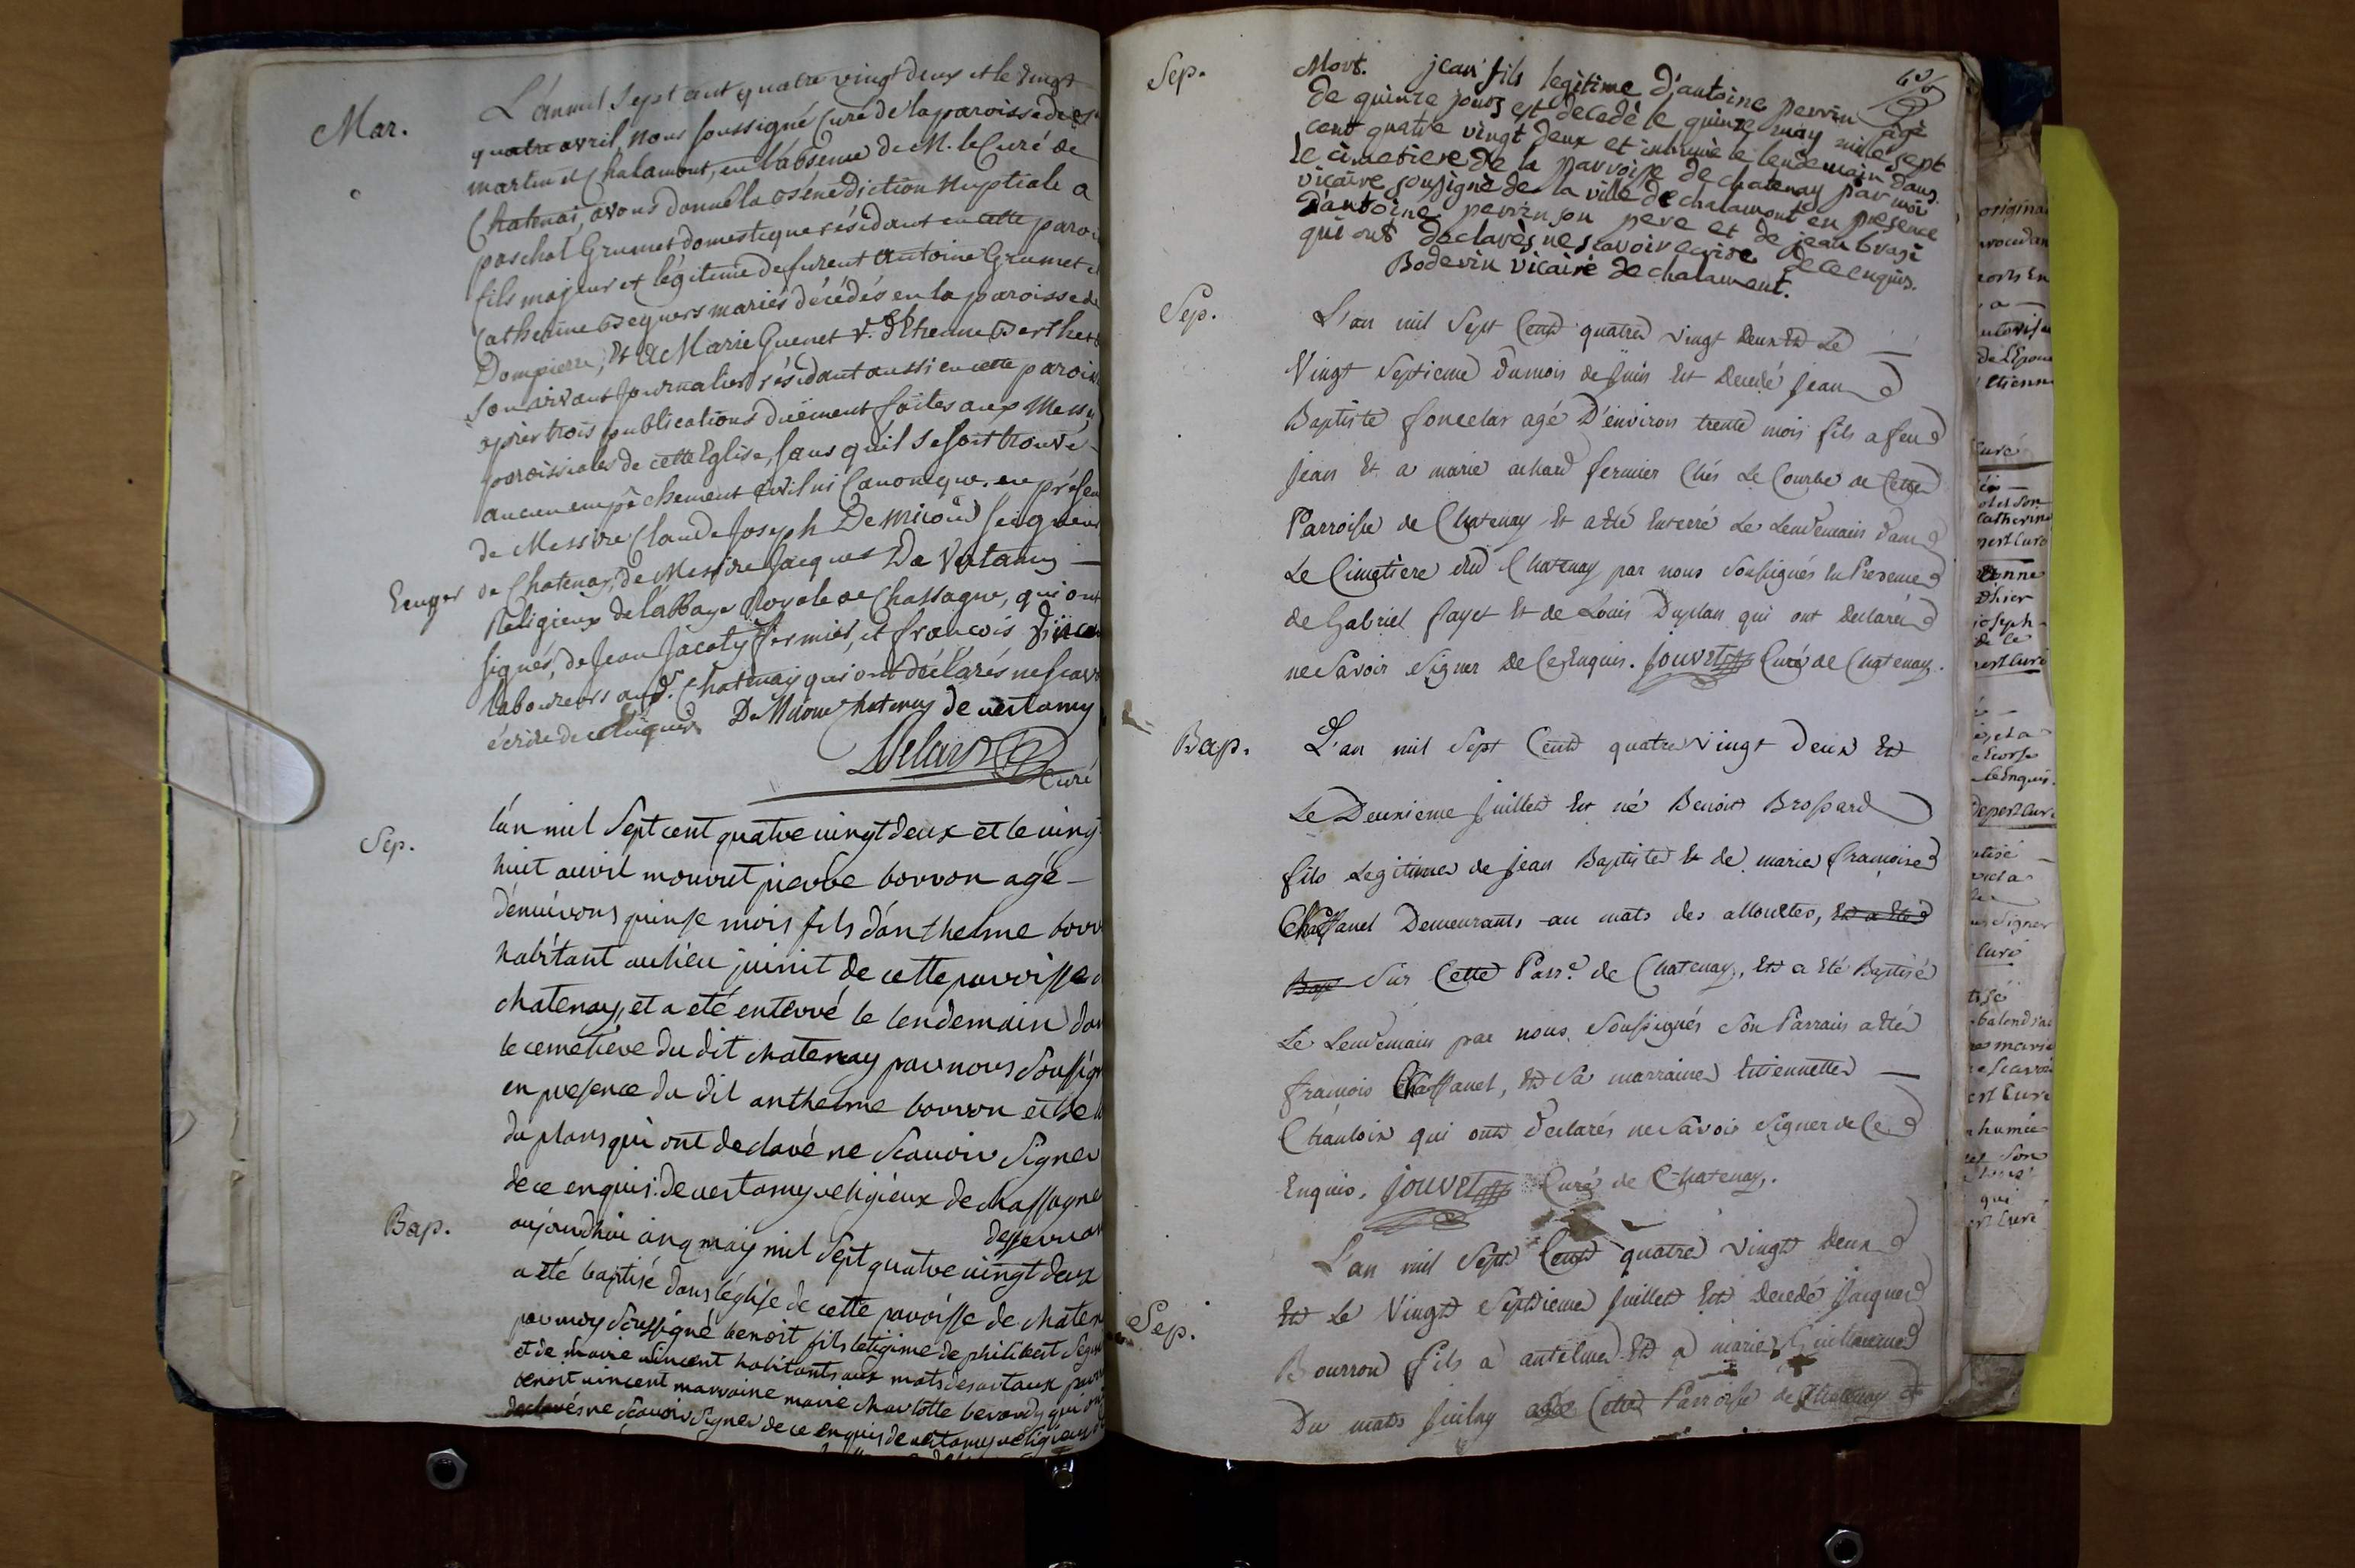 Mar.
L'an mil sept cent quatre vingt deux et le vingt
quatre avril, nous soussigné Curé de la paroisse de St
martin et Chalamont, en l'absence de M. le Curé de
Chatenai, avons donné la Bénédiction Nuptiale a
paschal Grumet domestique résidant en cette paroi
fils majeur et légitime de furent antoine Grumet et
Catherine mariés décédés en la paroisse de
Dompierre, Et a Marie Guenet v.e d'Etienne Berthet
son vivant journalier résidant aussi en cette paroiss
après trois publications duëment faites aux Mess
paroissiales de cette Eglise, sans qu'il se soit trouvé
aucun empêchement Civil ni Canonique. en présen
de Messire Claude Joseph De Micoud seigneur
Ecuyer de Chatenay, de Messire Jacques De Vertamy
Religieux de l'abbaye Royale de Chassagne, qui ont
signés, de Jean Jacoty fermier, et françois Vincen
laboureurs aud. Chatenay qui ont déclarés ne scav
écrire de ce Enquis. De Micoud Chatenay de vertamy
Delard
Curé
Sep.
l'an mil Sept cent quatre vingt deux et le ving
huit avril mourut pierre borron agé
d'énuirons quinse mois fils d'anthelme borr
habitant au lieu juinit de cette parroisse d
chatenay, et a eté enterré le lendemain dan
le cemetiere du dit chatenay par nous Soussig
en presence du dit anthelme borron et be
du plans qui ont declaré ne Scauoir Signer
de ce enquis. de uertamy religieux de chassagne
desseruan
Bap.
aujourdhui cinq may mil Sept quatre uingt deux
a eté baptisé dans l'église de cette paroisse de chaten
par moy Soussigné benoit fils letigime de philibert Segu
et de marie uincent habitants aux mats des artaux parr
benoit uincent marraine marie charlotte berardy qui ont
declarés ne Scauoir Signer de ce enquis de uertamy religieux
Sep.
Mort. jean fils legitime d'antoine perrin agé
de quinze jours est decedé le quinze may mille sept
cent quatre vingt deux et inhumé le lendemain dans
le cimetiere de la parroisse de chatenay par moi
vicaire sousigné de la ville de chalamont en presence
d'antoine perrin son pere et de jean
qui ont declarés ne scavoir ecrire de ce enquis.
Bodevin vicaire de chalamont.
Sep.
L'an mil Sept Cent quatre vingt deux Et Le
Vingt Septieme du mois de Juin Est Decedé Jean
Baptiste fonclar agé D'environ trente mois fils a feu
jean Et a marie achard fermier Chés Le Courbe de Cette
Parroisse de Chatenay Et a Eté Enterré Le Lendemain dans
Le Cimetiere dud Chatenay par nous Soussignés En Presence
de Gabriel fayet Et de Louis Duplan qui ont declaré
ne Savoir Signer De Ce Enquis. Jouvet Curé de Chatenay.
Bap.
L'an mil Sept Cent quatre vingt deux Et
Le Deuxieme Juillet Est né Benoit Brossard
fils Legitime de jean Baptiste Et de marie françoise
Chaffanel Demeurants au mats des allouettes, Et a Eté
Bap Sur Cette Parr.e de Chatenay, Et a Eté Baptisé
Le Lendemain par nous Soussignés Son Parrain a Eté
françois Chaffanel, Et Sa marraine Etiennette
Chauloix qui ont declarés ne Savoir Signer de Ce
Enquis. Jouvet Curé de Chatenay.
Sep.
L'an mil Sept Cent quatre Vingt Deux
Et Le Vingt Septieme Juillet Est Decedé Jacques
Bourron fils a antelme Et a marie Guillaume
Du mats Cette Parroisse de Chatenay